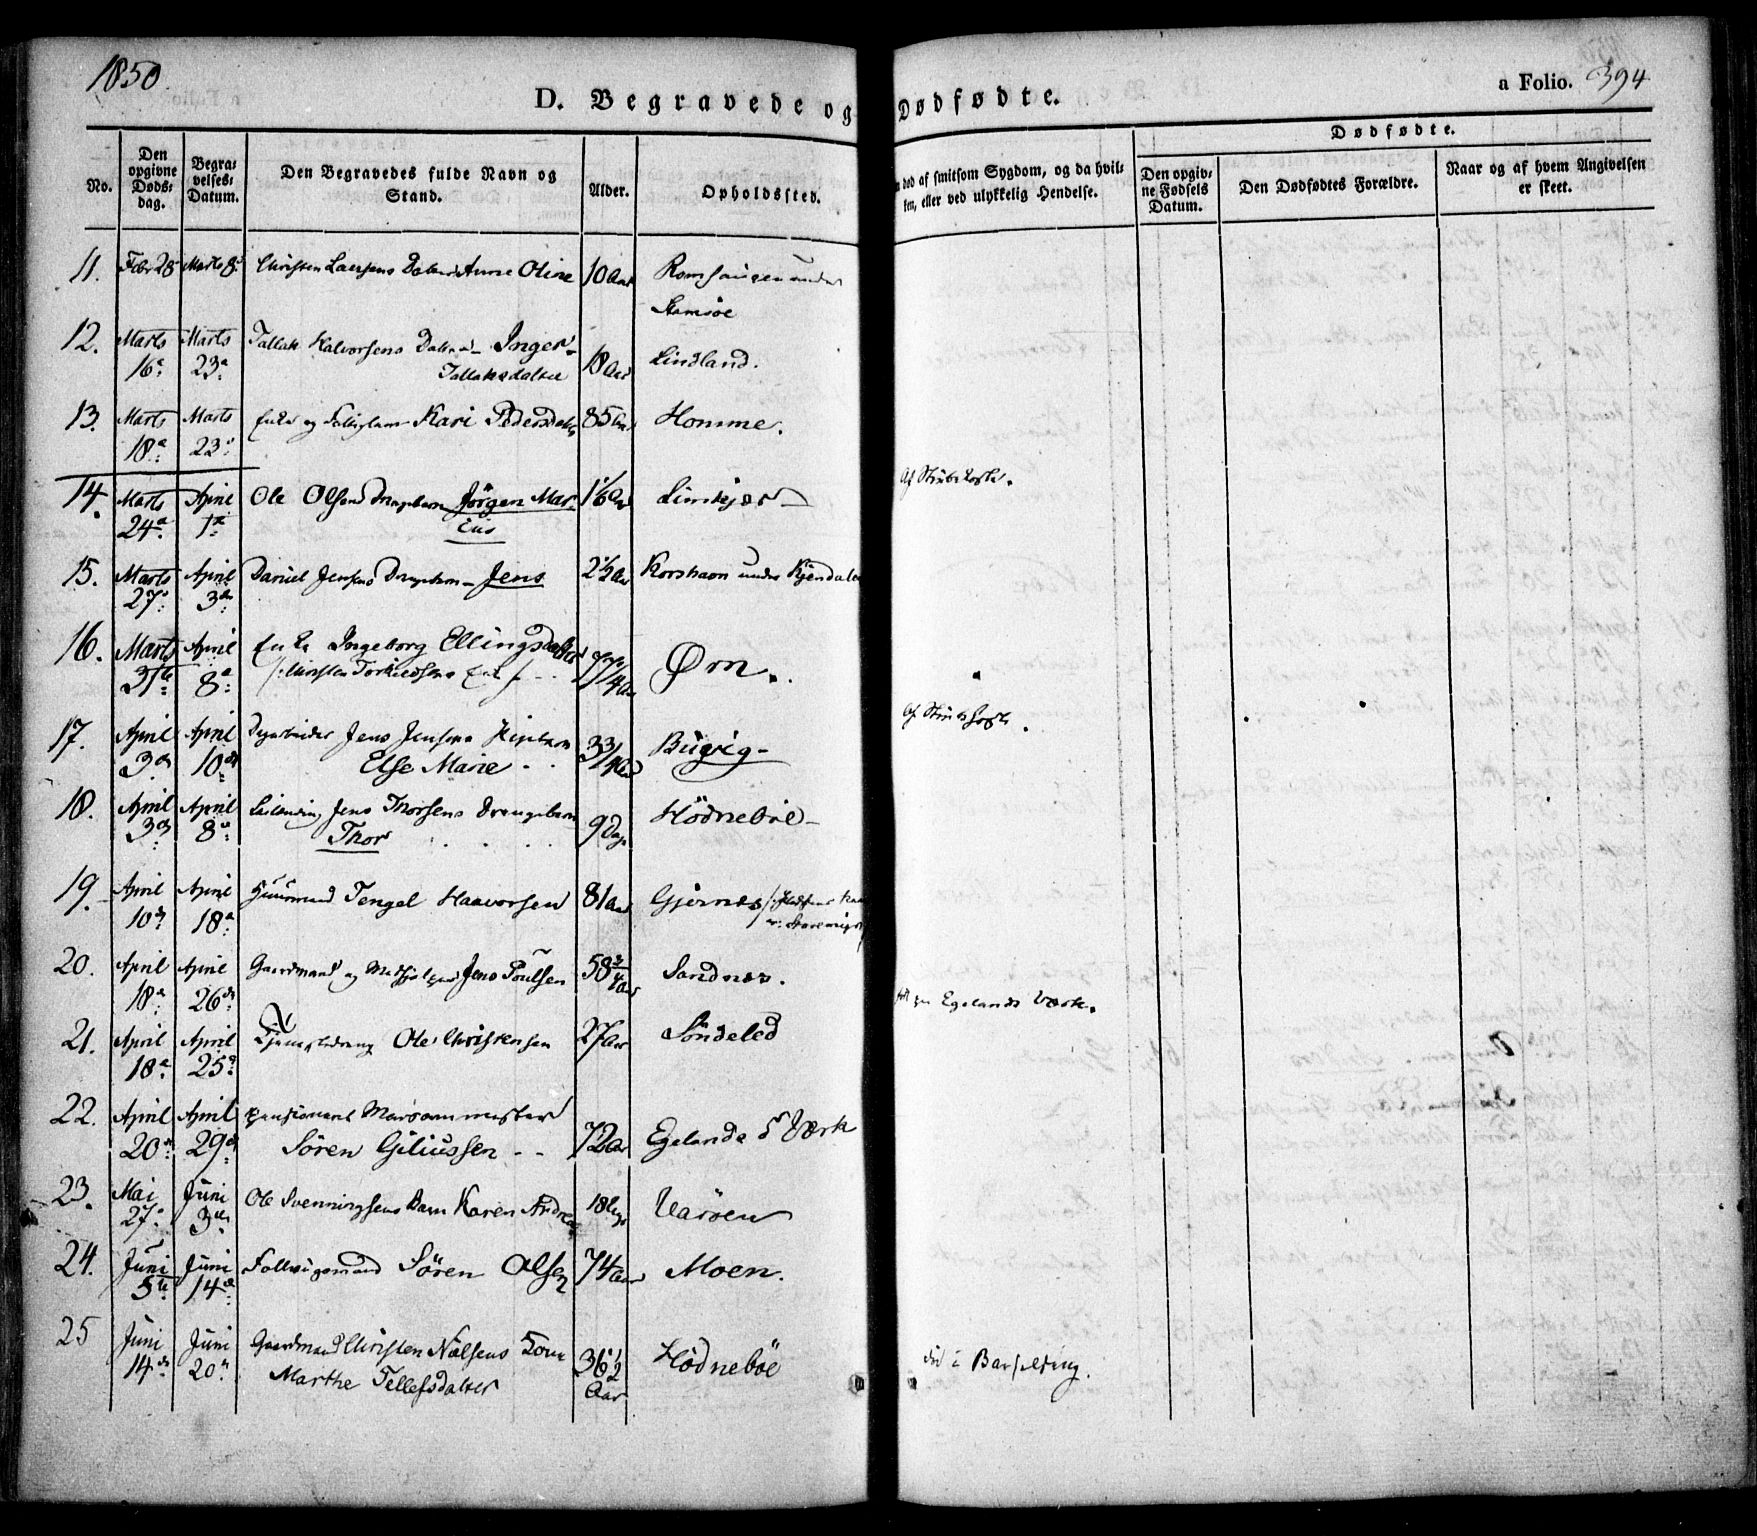 1850.
D. Begravede og Dødfødte.
a Folio. 394
No.
Den opgivne Døds-dag.
Begravelses-Datum.
Den Begravedes fulde Navn og Stand.
Alder.
Opholdssted.
død af smitsom Sygdom, og da hvilken, eller ved ulykkelig Hendelse.
Dødfødte.
Den opgivne Fødsels Datum.
Den Dødfødtes Forældre.
Naar og af hvem Angivelsen er skeet.
11. Febr 28 Marts 8 Christen Larsens Datter Anne Oline 10 Aar
Stamsöe
12. Marts 16 Marts 23 Tallak Halvorsens Datter Inger Tallaksdatter 18 Aar Lindland.
13. Marts 18 Marts 23 Enke og Kari Pedersdatter 85 Aar Homme.
14. Marts 24 April 1 Ole Olsens Drengebarn Jörgen Marius Aar Af Strubehoste.
15. Marts 27 April 3 Daniel Jensens Drengebarn Jens 2½ Aar Korshavn under Kjendalen
16. Marts 31te April 8 Enke Ingeborg Ellingsdatter
/: Christen Torkildsens Enke 77/4 Aar Ørn.
17. April 3 April 10 Jens Jensens Pigebarn
Else Marie 3 3/4 Aar Bugvig Af Strubehoste.
18. April 3 April 8 Jens Thorsens Drengebarn
Thor 9 Dage Hödneböe
19. April 10 April 18 Huusmand Tengel Haavorsen 81 Aar Gjernes
20. April 18 April 26 Gaardmand og Medhjelper Jens Poulsen 58 3/4 Aar Sandnes.
paa Egelands Værk.
21. April 18 April 25 Tjenestedreng Ole Christensen 27 Aar Söndeled
22. April 20 April 29 pensioneret Masovnmester
Sören Giliussen 72 Aar Egelands Værk
23. Mai 27 Juni 3 Ole Svenningsens Barn Karen Andrea 18 Uger
24. Juni 5te Juni 14 Sören Olsen 74 Aar Moen.
25 Juni 14 Juni 20 Gaardmand Christen Nielsens Kone
Marthe Tellefsdatter 36½ Aar Hödneböe död i Barselseng.